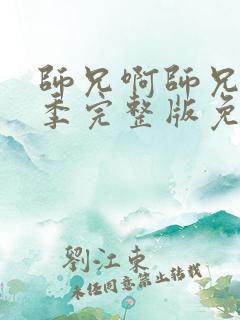 師兄啊師兄
季完整版免
劉江東
未經同意禁止轉載